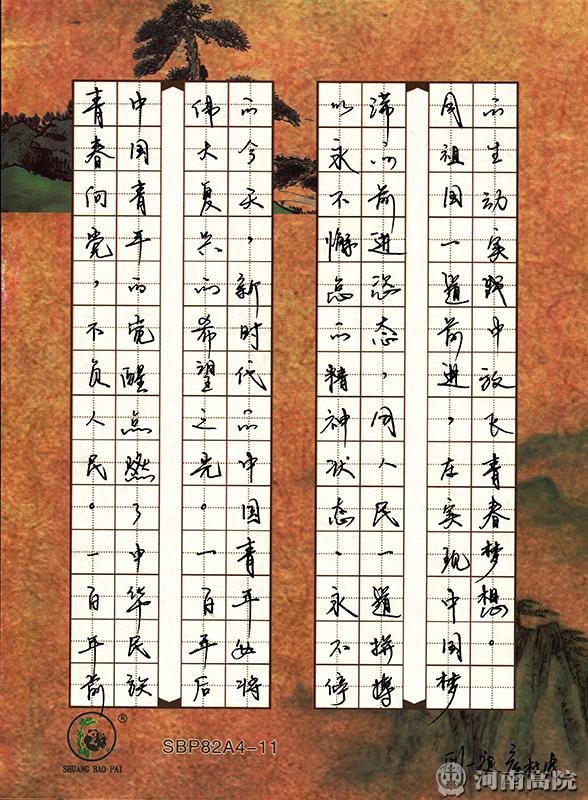 青春向党，不负人民。一百年前
中国青年的觉醒点燃了中华民族
伟大复兴的希望之光。一百年后
的今天，新时代的中国青年必将
以永不懈怠的精神状态、永不停
滞的前进姿态，同人民一道拼搏
同祖国一道前进，在实现中国梦
的生动实践中放飞青春梦想。
刑一庭
®
SHUANG BAO PAI
SBP82A4-11
河南高院